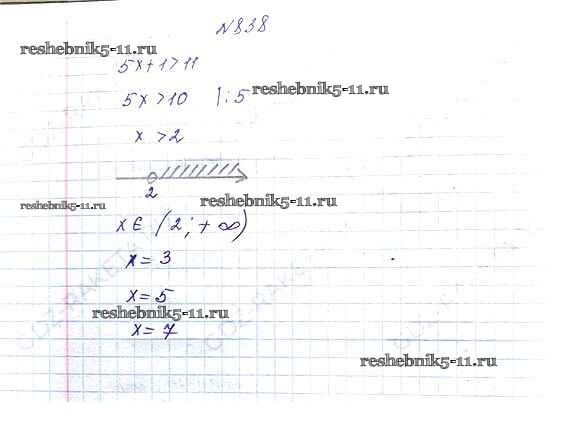 №838
reshebnik5-11.ru
5x+1>11
5x>10 |:5 reshebnik5-11.ru
x>2
2
reshebnik5-11.ru reshebnik5-11.ru
x∈(2;+∞)
x=3
x=5
reshebnik5-11.ru
x=7
reshebnik5-11.ru